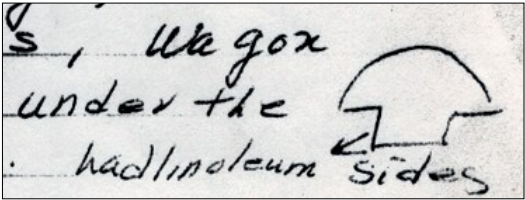 s, Wagon
under the
. hadlinoleum sides